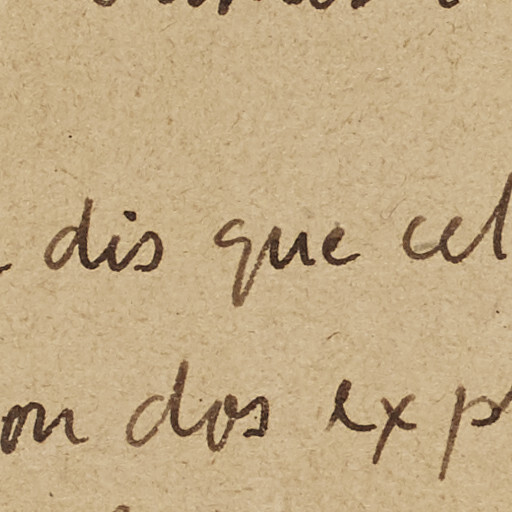 dis que cel
on dos exp